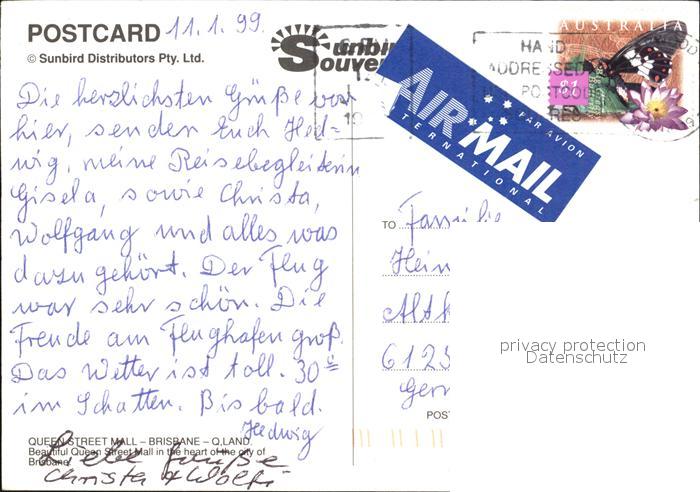 POSTCARD 11.1.99.
© Sunbird Distributors Pty. Ltd.
Sunbird
Souven
Die herzlichsten Grüße von
hier, senden Euch Hed=
wig, meine Reisebegleiterin
Gisela, sowie Christa,
Wolfgang und alles was
dazu gehört. Der Flug
war sehr schön. Die
Freude am Flughafen groß.
Das Wetter ist toll. 30°
im Schatten. Bis bald.
Hedwig
Liebe Grüße
Christa + Wolfi
QUEEN STREET MALL – BRISBANE – Q,LAND.
Beautiful Queen Street Mall in the heart of the city of
Brisbane
AUSTRALIA
$1
HAND
ADDRESSED
POSTCODE
AIR MAIL
PAR AVION
INTERNATIONAL
TO Familie
Hein
Alth
6125
Ger
POST
privacy protection
Datenschutz